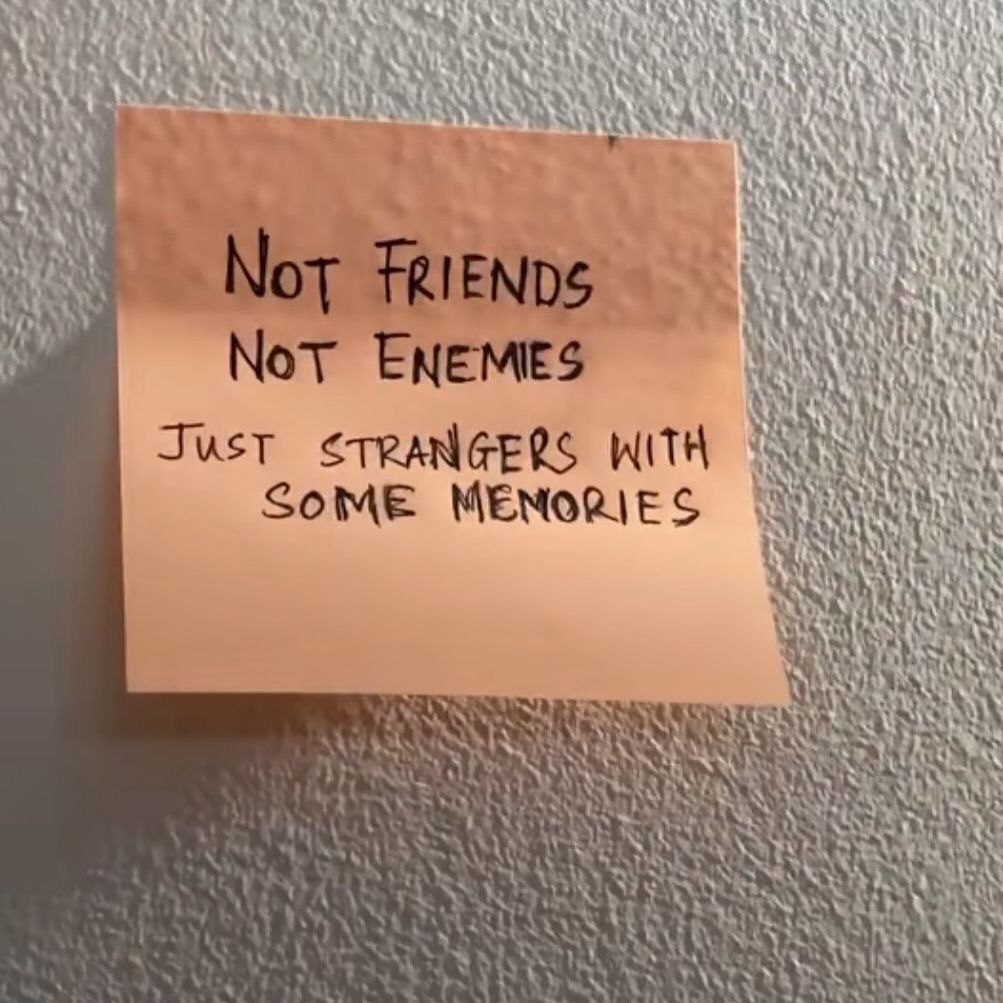 NOT FRIENDS
NOT ENEMIES
JUST STRANGERS WITH
SOME MEMORIES